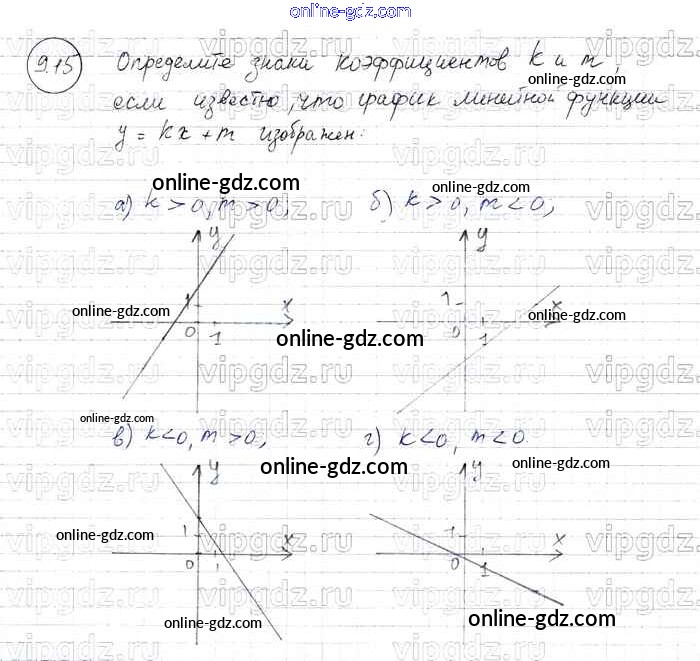 online-gdz.com
9.15 Определите знаки коэффициентов k и m,
если известно, что график линейной функции
y = kx + m изображен:
online-gdz.com online-gdz.com
а) k > 0, m > 0; б) k > 0, m < 0;
y y
1 x 1 x
online-gdz.com online-gdz.com
0 1 0 1
online-gdz.com
online-gdz.com
в) k < 0, m > 0; г) k < 0, m < 0.
online-gdz.com online-gdz.com
y y
online-gdz.com
1 x 1 x
0 1 0 1
online-gdz.com online-gdz.com
vipgdz.ru